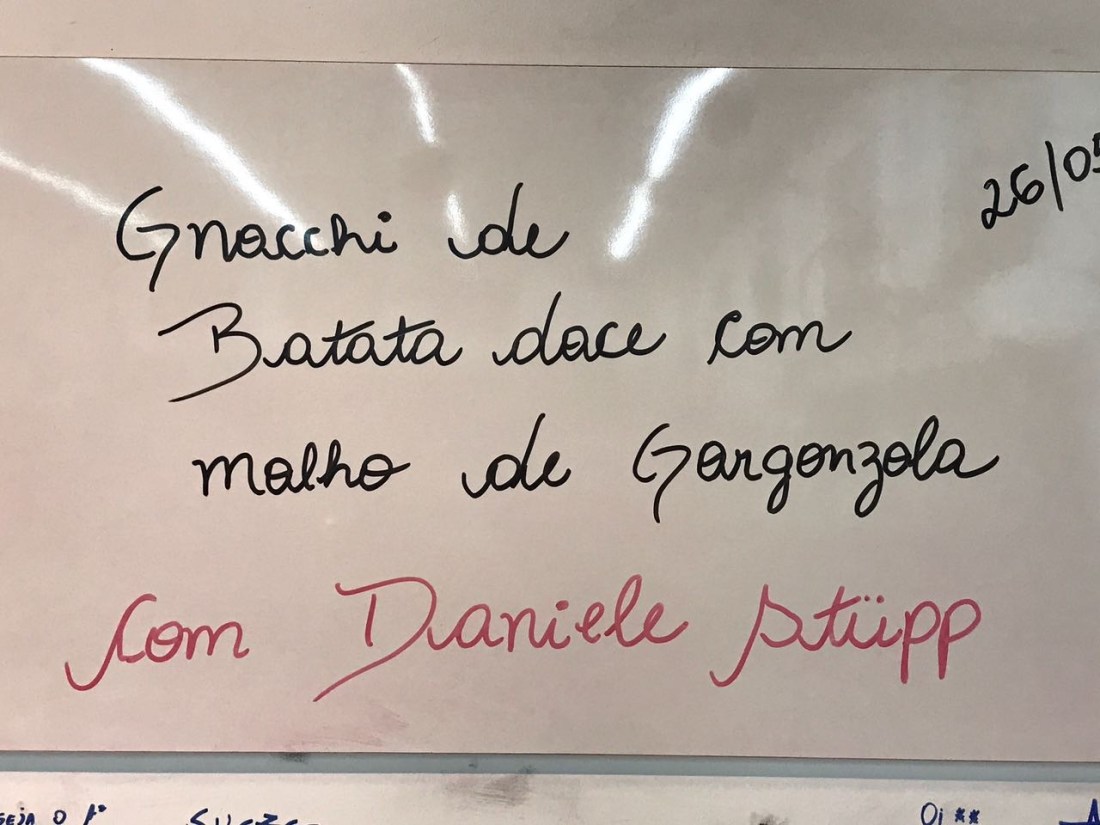 26/05
Gnocchi de
Batata doce com
molho de Gorgonzola
com Daniele Stüpp
SEJA O 1º
Oi **